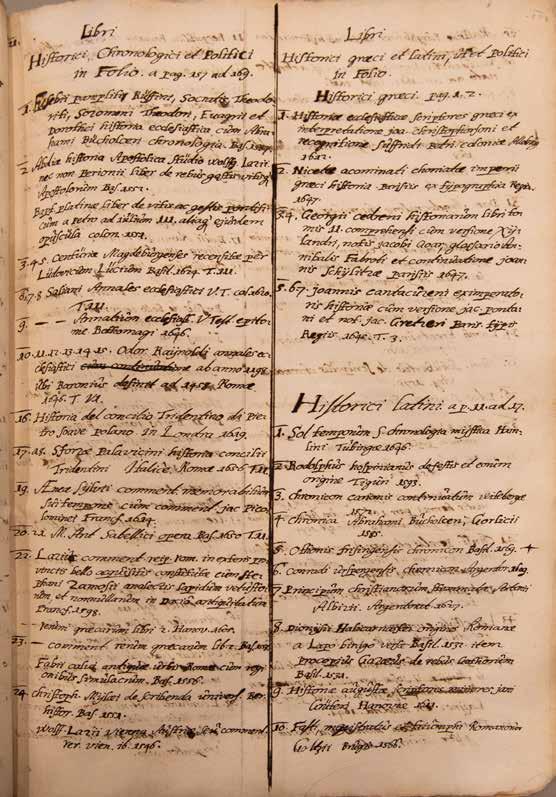 Libri
Historici, Chronologici et Politici
in Folio. a pag. 157 ad 169.
1. Eusebii pamphili, Ruffini, Socratis, Theodo
riti, Sozomeni Theodori, Evagrii et
Dorothei historia ecclesiastica cum
Bücholceri chronologia Bas.
2 Abdiae historia Apostolica studio Wolfg. Lazii
nec non Perionii liber de rebus gestis
Apostolorum Bas. 1552.
Bapt. platinae liber de vitis ac gestis pontific
cum a petro ad iulium III. aliaq; ejusdem
opuscula colon. 1551.
3.4.5. Centuriae Magdeburgenses recensitae per
Ludovicum Lucium Basil. 1624. T. III.
6.7.8 Saliani Annales ecclesiastici V.T. col.
T. III.
9. — Annalium ecclesiast. V. Test. epito
me Rothomagi 1646.
10.11.12.13.14.15. Odor. Raynoldi annales ec
clesiastici ab anno 1198
ubi Baronius definit ad Romae
1646. T. VI.
16. Historia del concilio Tridentino di Pie
tro soave polano in Londra 1619.
17.18. Sforzae Palavicini historia concilii
Tridentini Italice. Romae 1656 T. II.
19. Aeneae Sylvii comment. memorabilium
sui temporis cum comment. jac. Pico
lominei Francf. 1614.
20.21. M. Ant. Sabellici opera Bas. 1560 T. II.
22. Lazius comment. reip. rom. in exteris pro
vinciis bello acquisitis constitutae cum Ste
phani Zamosii analectis lapidum vetustor
um et nonnullarum in Dacia antiquitatum
Francf. 1598.
— rerum graecarum libri 2. Hanov. 1605.
23. — comment. rerum graecarum lib. 2. Bas.
Fabii calvi antiquae urbis Romae cum regi
onibus simulacrum. Bas. 1556.
24. Christoph. Mylaei de scribenda univers. rer.
histor. Bas. 1551.
Wolf. Lazii Vienna Austriae seu comment.
rer. vien. 1546.
Libri
Historici graeci et latini, et Politici
in Folio.
Historici graeci. pag. 1. 2.
1. Historiae ecclesiasticae scriptores graeci ex
interpretatione joa. Christophersoni et
recognitione Suffridi Petri. coloniae
1612.
2. Nicetae acominati choniatae imperii
graeci historia Parisiis ex typographia Regia
1647.
3.4. Georgii cedreni historiarum libri to
mis II. comprehensi cum versione Xy
landri, notis jacobi Goar, glossario An
nibalis Fabroti et continuatione joan
nis Scylitzae Parisiis 1647.
5.6.7. joannis cantacuzeni eximperato
ris historiae cum versione jac. ponta
ni et not. jac. Gretzeri Paris. typis
Regiis 1645. T. 3.
Historici latini. a p. 11. ad 17.
1. Sol temporum S. chronologia mystica Hain
lini Tubingae 1646.
2 Rodolphus hospinianus de festis et eorum
origine Tiguri 1593.
3. Chronicon carionis continuatum witebergae
1572.
4 Chronica Abrahami Bücholceri, Gorlicii
1585.
5. Othonis frisingensis chronicon Basil. 1569. +
6. conradi urspergensis chronicon Argentor. 1609.
7. Principum christianorum stemmata Antonii
Albizii. Argentorat. 1627.
8. Dionysii Halicarnassei origines Romanae
a Lapo birago versae Basil. 1532. item
procopius Gazaeus de rebus
Basil. 1531.
9. Historiae augustae scriptores minores jani
Gruteri Hanoviae 1611.
10. Fasti, magistratus et triumphi Romanorum
Goltzii Brugis 1566.